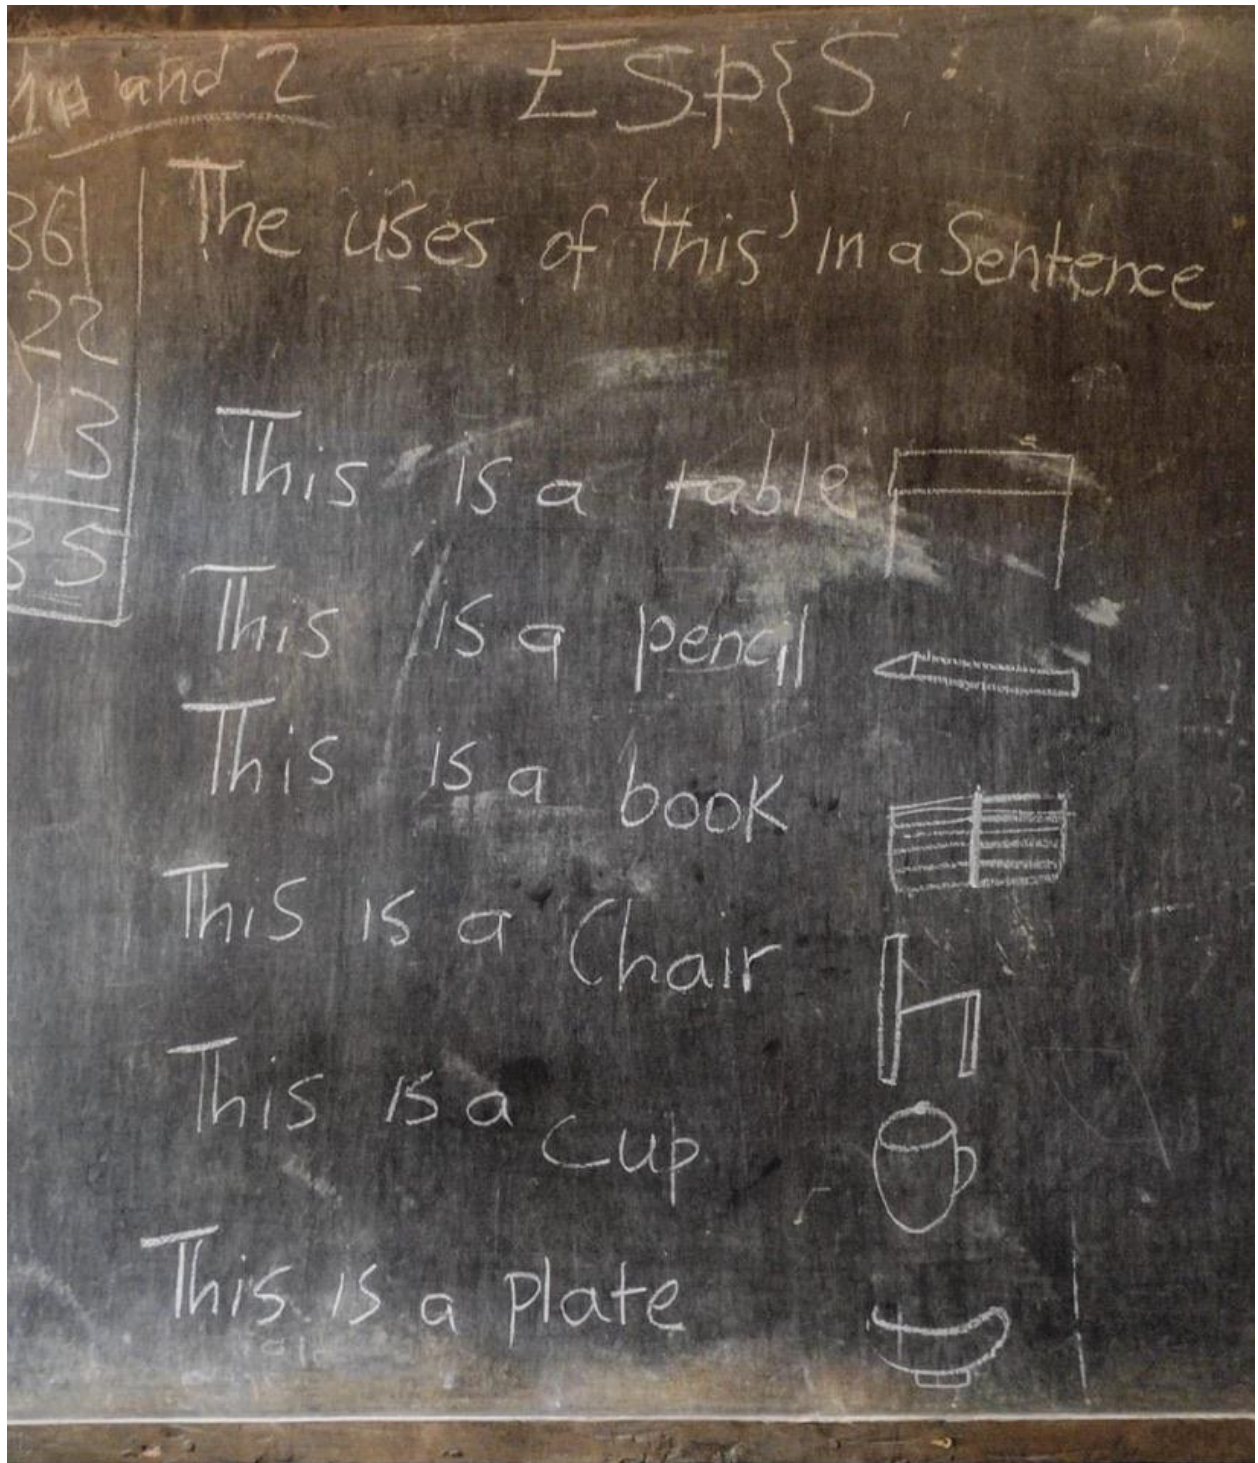 and 2
ESp{S:
The uses of 'this' in a Sentence
36
22
13
35
This is a table
This is a pencil
This is a book
This is a Chair
This is a cup
This is a plate